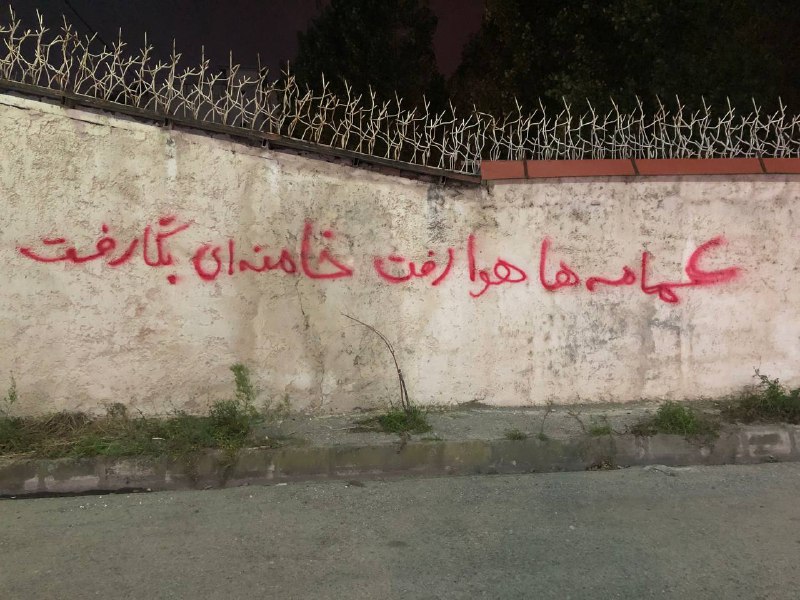 عمامه ها هوا رفت خامنه‌ای بگا رفت